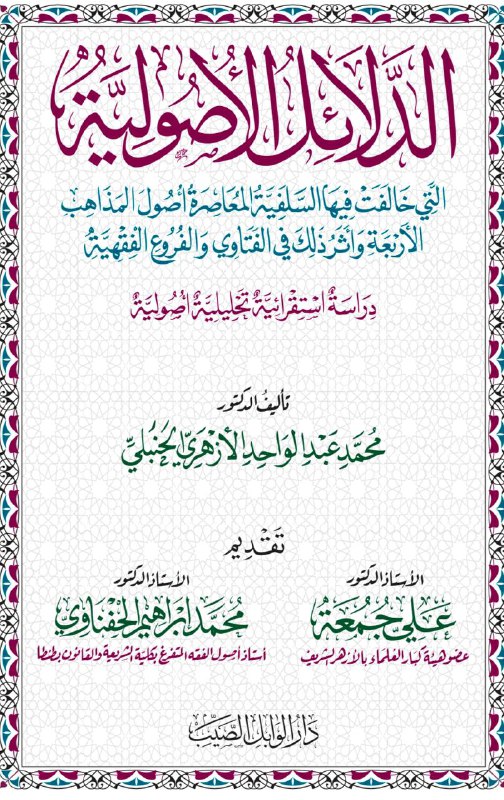 الدَّلَائِلُ الأُصُولِيَّةُ
الَّتِي خَالَفَتْ فِيهَا السَّلَفِيَّةُ المُعَاصِرَةُ أُصُولَ المَذَاهِبِ
الأَرْبَعَةِ وَأَثَرُ ذَلِكَ فِي الفَتَاوِي وَالفُرُوعِ الفِقْهِيَّةِ
دِرَاسَةٌ اسْتِقْرَائِيَّةٌ تَحْلِيلِيَّةٌ أُصُولِيَّةٌ
تأليفُ الدكتور
مُحَمَّد عَبْدِ الوَاحِدِ الأَزْهَرِيّ الحَنْبَلِيّ
تَقْدِيم
الأستاذ الدكتور
عَلِيّ جُمُعَة
عضو هيئة كبار العلماء بالأزهر الشريف
الأستاذ الدكتور
مُحَمَّد إِبْرَاهِيم الحَفْنَاوِي
أستاذ أصول الفقه المتفرغ بكلية الشريعة والقانون بطنطا
دَارُ الوَابِلِ الصَّيِّبِ